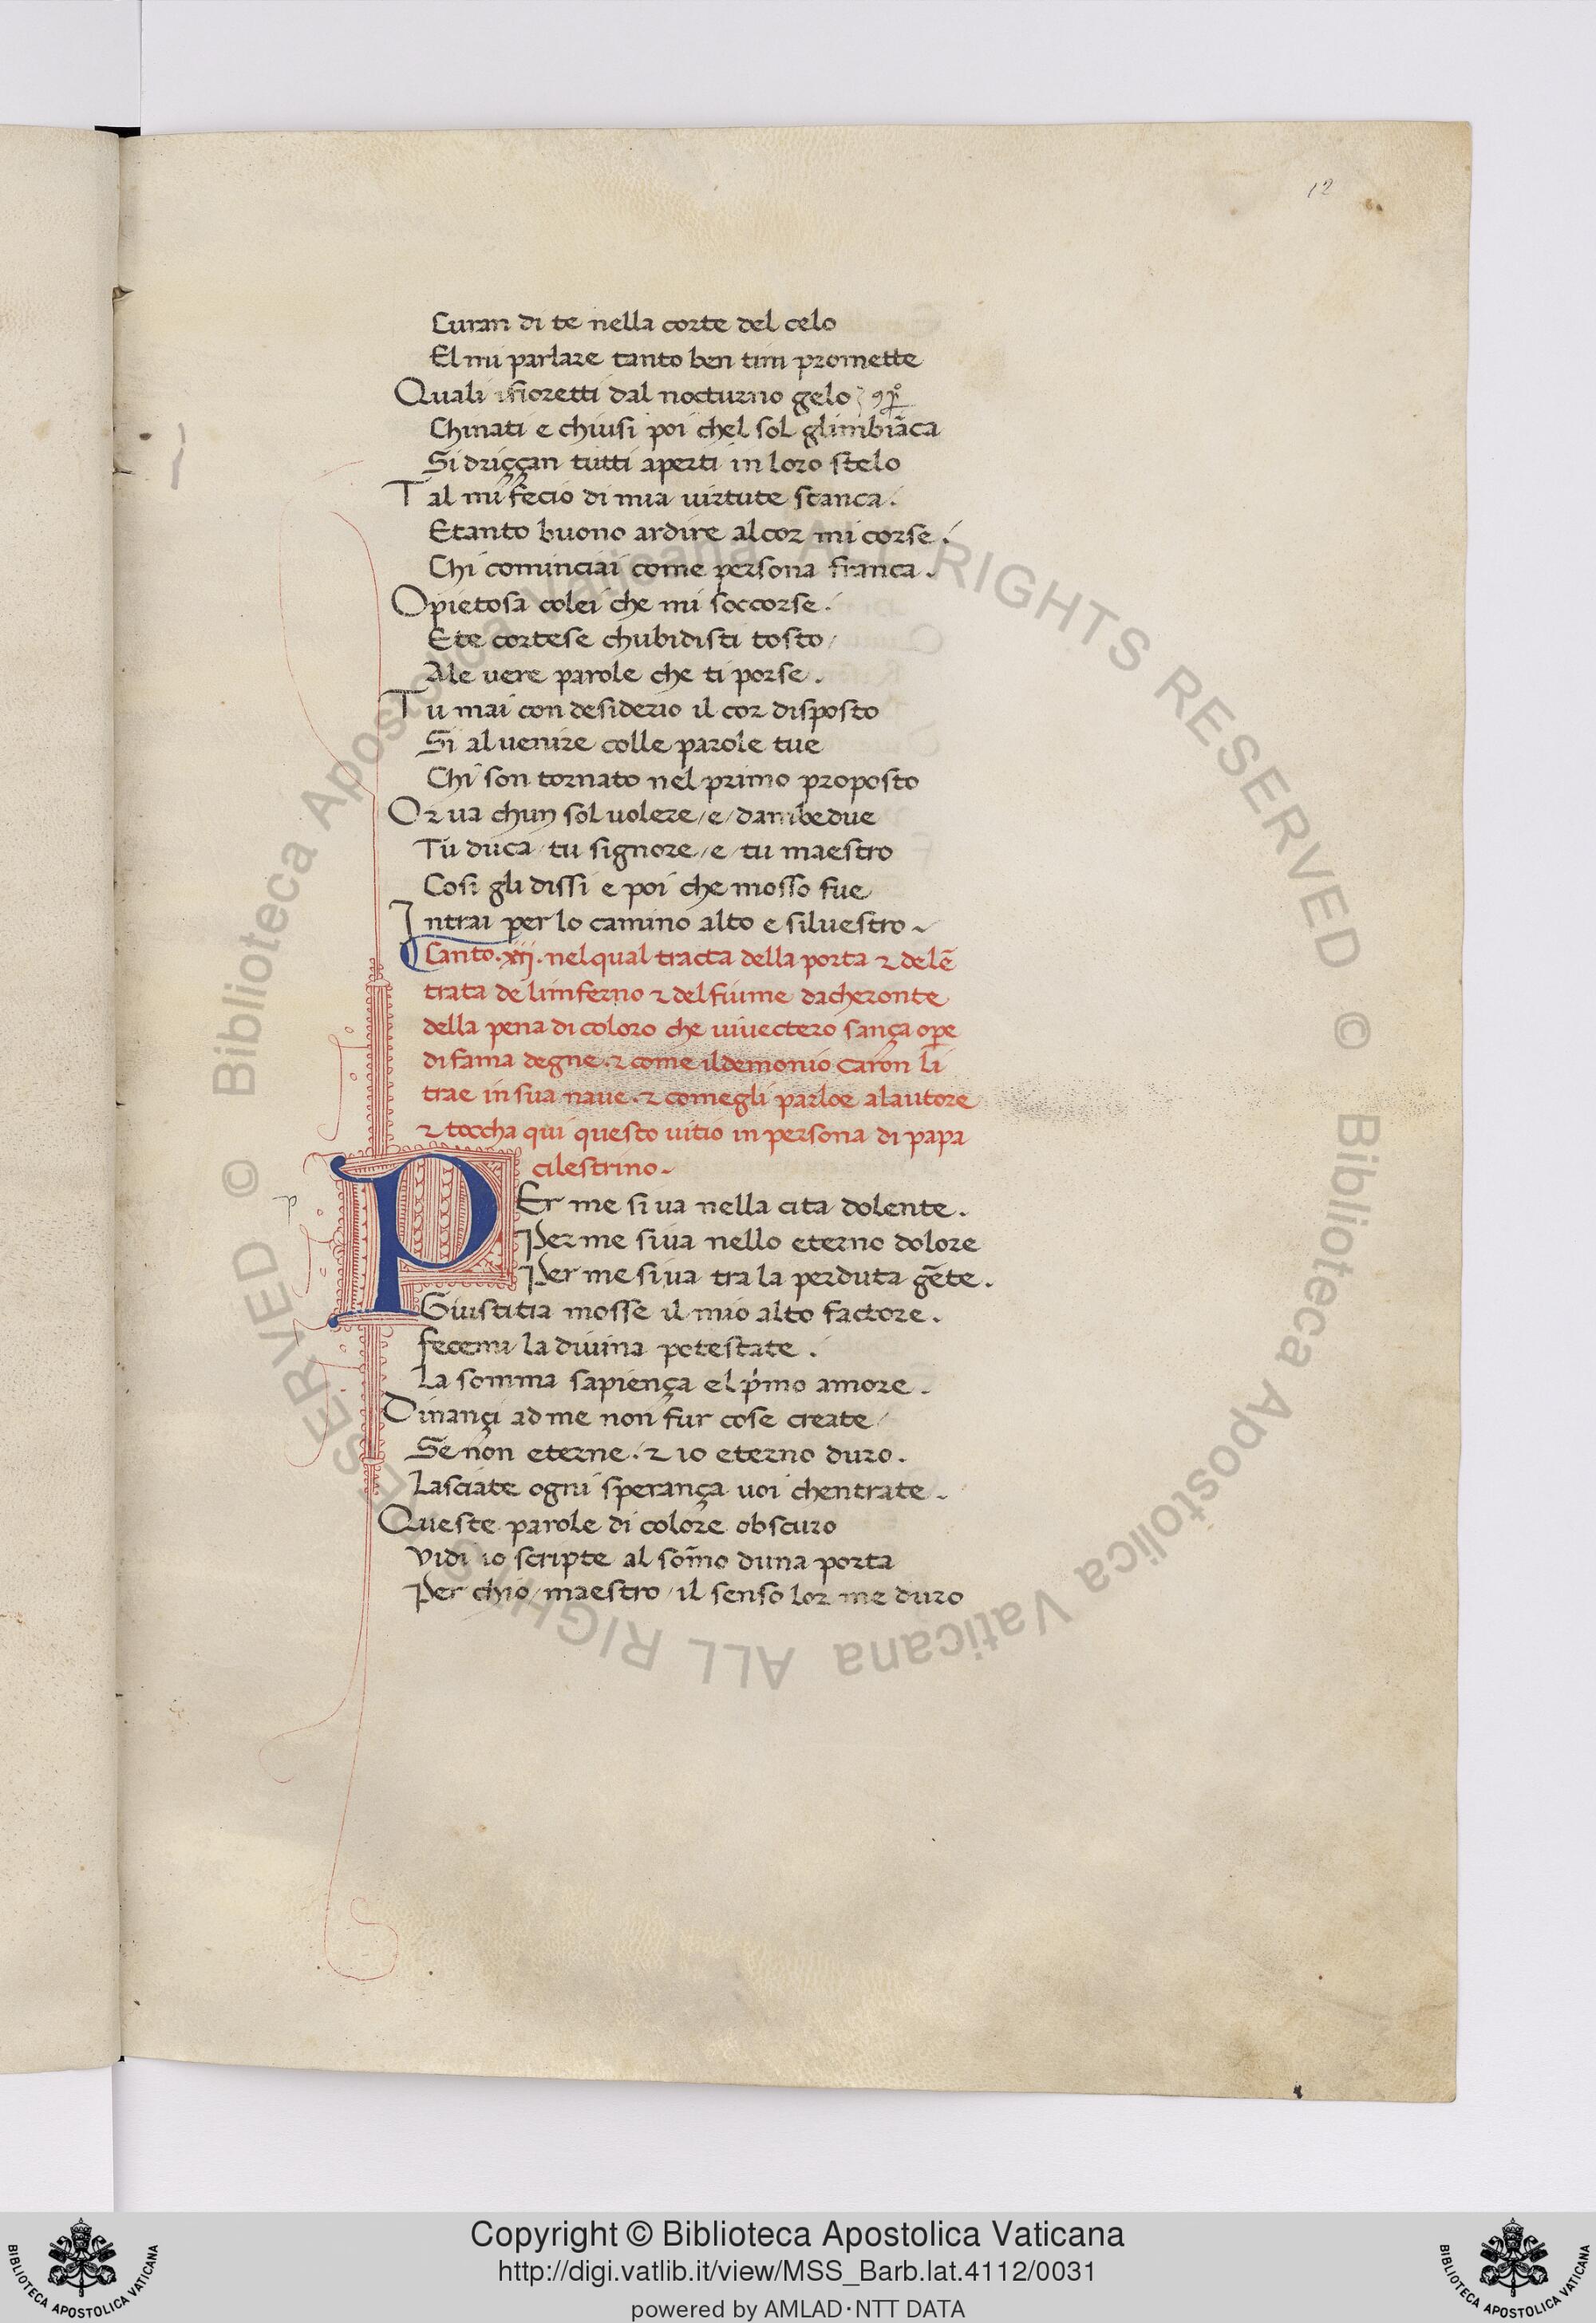 12
Curan di te nella corte del celo
El mi parlare tanto ben tim promette
Quali ifioretti dal nocturno gelo
Chinati e chiusi poi chel sol glimbiãca
Si driççan tutti aperti in loro stelo
Tal mi fecio di mia virtute stanca.
Etanto buono ardire alcor mi corse.
Chi cominciai come persona franca.
Opietosa colei che mi soccorse.
Ete cortese chubidisti tosto/
Ale vere parole che ti porse.
Tu mai con desiderio il cor disposto
Si al venire colle parole tue
Chi son tornato nel primo proposto
Or va chun sol volere/e/dambedue
Tu duca/tu signore/e/tu maestro
Cosi gli dissi e poi che mosso fue
Intrai per lo camino alto e silvestro~
Canto. .nel qual tracta della porta ⁊ delẽ
trata de linferno ⁊ del fiume dacheronte
della pena di coloro che vivectero sança oꝑe
di fama degne.⁊ come il demonio Caron li
trae in sua nave.⁊ comegli parloe alautore
⁊ toccha qui questo vitio in persona di papa
cilestrino~
p
PEr me si va nella cita dolente.
Per me si va nello eterno dolore
Per me si va tra la perduta gẽte.
Giustitia mosse il mio alto factore.
fecemi la divina potestate.
La somma sapiença el pͥmo amore.
Dinançi ad me non fur cose create/
Se non eterne.⁊ io eterno duro.
Lasciate ogni sperança voi chentrate.
Queste parole di colore obscuro
Vidi io scripte al som̃o duna porta
Per chio/maestro/il senso lor me duro
© Biblioteca Apostolica Vaticana ALL RIGHTS RESERVED © Biblioteca Apostolica Vaticana ALL RIGHTS RESERVED
BIBLIOTECA APOSTOLICA VATICANA
Copyright © Biblioteca Apostolica Vaticana
http://digi.vatlib.it/view/MSS_Barb.lat.4112/0031
powered by AMLAD·NTT DATA
BIBLIOTECA APOSTOLICA VATICANA